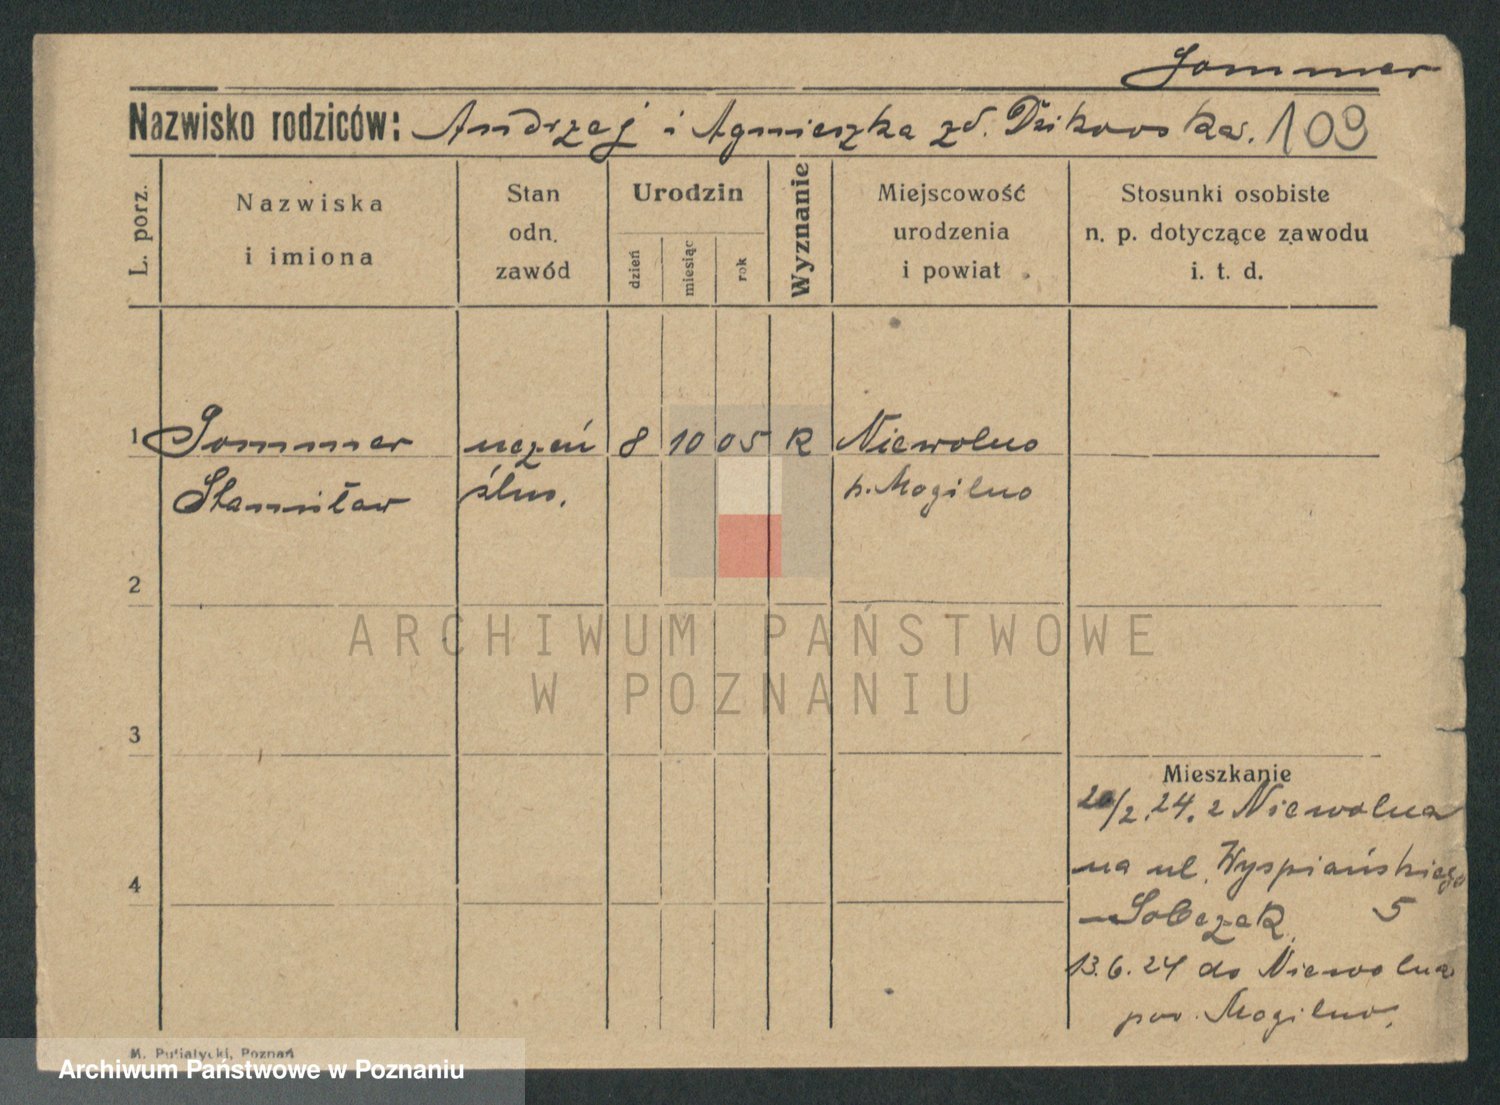 Sommer
Nazwisko rodziców: Andrzej i Agnieszka zd. Dzikowska. 109
L. porz.
Nazwiska
i imiona
Stan
odn.
zawód
Urodzin
dzień
miesiąc
rok
Wyznanie
Miejscowość
urodzenia
i powiat
Stosunki osobiste
n. p. dotyczące zawodu
i. t. d.
1 Sommer uczeń 8 10 05 R Niewolno
Stanisław ślus. p. Mogilno
2
ARCHIWUM PAŃSTWOWE
W POZNANIU
3
Mieszkanie
20/2.24. z Niewolna
4
na ul. Wyspiańskiego
Sobczak 5
13.6.24 do Niewolna
pow. Mogilno.
M. Putiatycki, Poznań
Archiwum Państwowe w Poznaniu